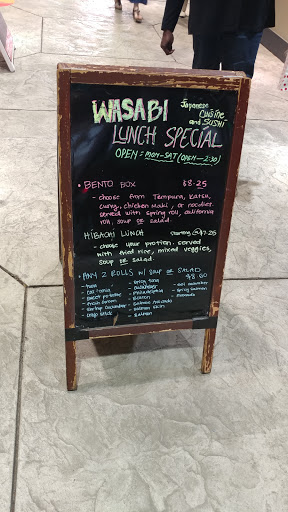 WASABI
Japanese
Cuisine
and Sushi
LUNCH SPECIAL
OPEN: MON-SAT (OPEN-2:30)
• BENTO BOX $8.25
- choose from Tempura, Katsu,
curry, chicken maki, or noodles
served with spring roll, california
roll, soup or salad
HIBACHI LUNCH starting @ $7.25
- choose your protien. served
with fried rice, mixed veggies,
soup or salad.
• ANY 2 ROLLS W/ SOUP OR SALAD
$8.60
- tuna
- california
- sweet potato
- shrimp cucumber
- spicy tuna
- cucumber
- Philadelphia
- Bacon
- salmon avocado
- salmon skin
- salmon
- eel cucumber
- spicy salmon
- avocado